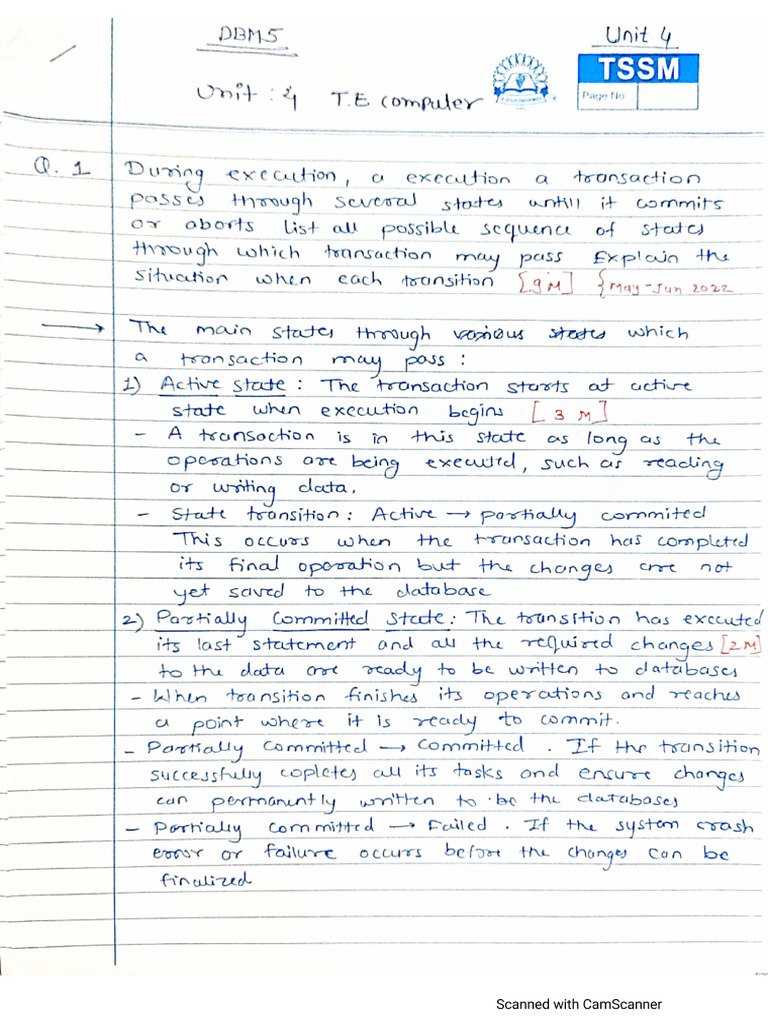 DBMS
Unit 4
TSSM
Page No
Unit : 4 T.E computer
Q. 1 During execution, a execution a transaction
passes through several states untill it commits
or aborts List all possible sequence of states
through which transaction may pass Explain the
situation when each transition [9M] {May-Jun 2022
→ The main states through various states which
a transaction may pass :
1) Active state : The transaction starts at active
state when execution begins [3 M]
- A transaction is in this state as long as the
operations are being executed, such as reading
or writing data.
- State transition : Active → partially commited
This occurs when the transaction has completed
its final operation but the changes are not
yet saved to the database
2) Partially Committed State : The transition has executed
its last statement and all the required changes [2M]
to the data are ready to be written to databases
- When transition finishes its operations and reaches
a point where it is ready to commit.
- Partially Committed → Committed . If the transition
successfully copletes all its tasks and ensure changes
can permanently written to be the databases
- Partially Committed → Failed . If the system crash
error or failure occurs before the changes can be
finalized
Scanned with CamScanner